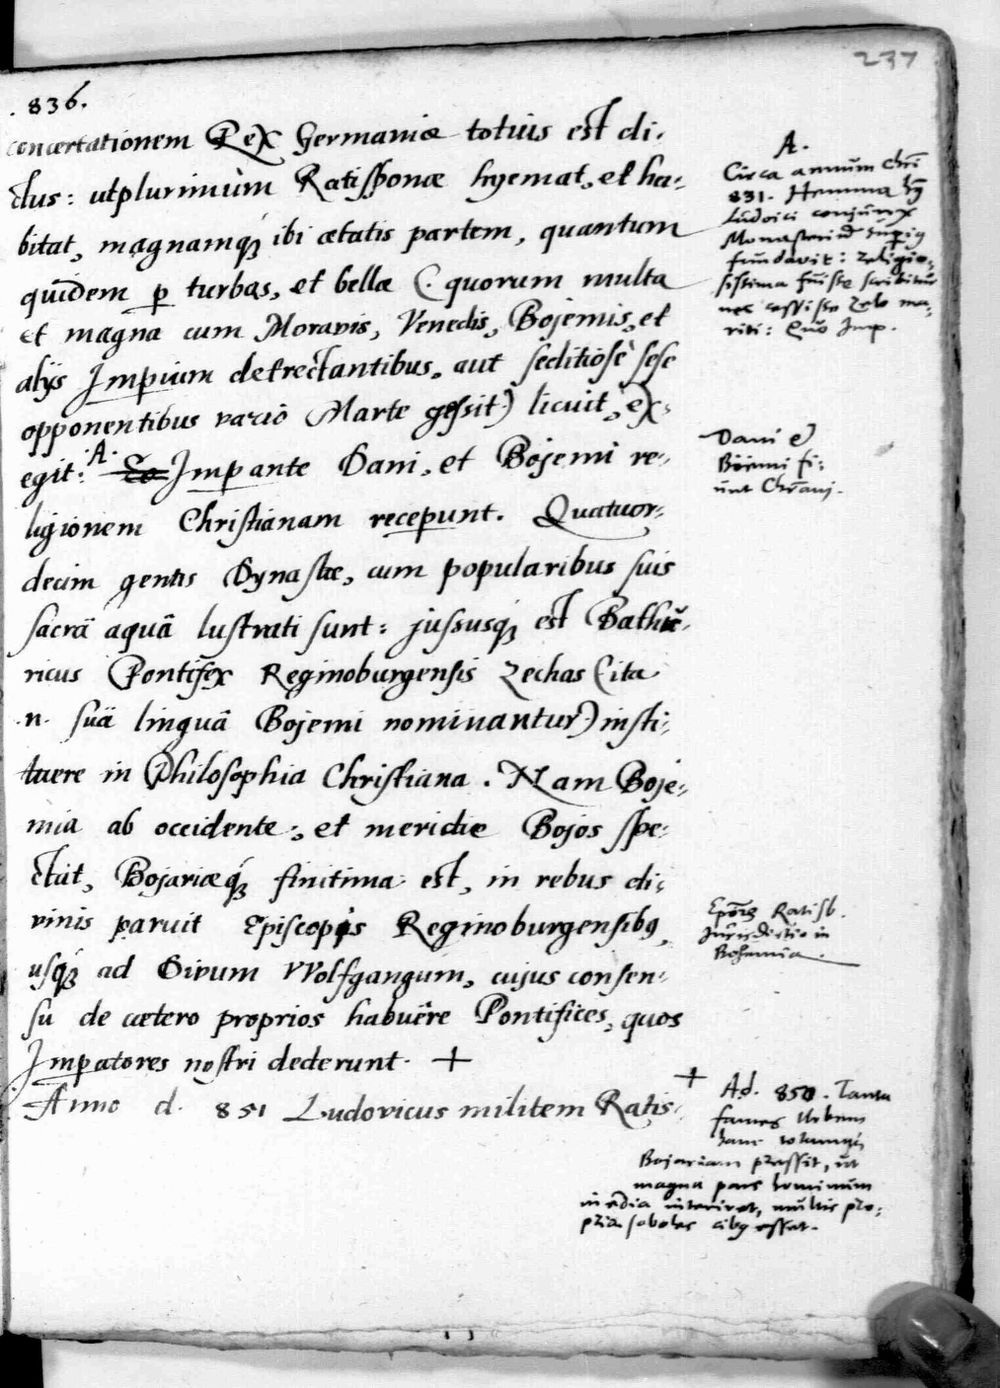 237
836.
concertationem Rex Germaniæ totius est di-
ctus: utplurimùm Ratisponæ hyemat, et ha-
bitat, magnamq́; ibi ætatis partem, quantum
quidem p turbas, et bella (: quorum multa
et magna cum Moravis, Venedis, Bojemis, et
alijs Impium detrectantibus, aut seditiosè sese
opponentibus vario Marte gessit) licuit, ex-
egit: A. Impante Dani, et Bojemi re-
ligionem Christianam recepunt. Quatuor-
decim gentis Dynastæ, cum popularibus suis
sacrâ aquâ lustrati sunt: jussusq́; est Bathu-
ricus Pontifex Reginoburgensis Zechas (ita
.n. suâ linguâ Bojemi nominantur) insti-
tuere in Philosophia Christiana. Nam Boje-
mia ab occidente, et meridie Bojos spe-
ctat, Bojariæq́; finitima est, in rebus di-
vinis paruit Episcopis Reginoburgensibq
usq́; ad Divum Wolfgangum, cujus consen-
su de cætero proprios habuêre Pontifices, quos
Impatores nostri dederunt. +
Anno d. 851 Ludovicus militem Ratis-
A.
Circa annum Chri
831. Hemma
Ludoici conjunx
Monasteriu
fundavit: religio-
sistima fuisse scribitur
nec cessisse zelo ma-
riti: Quo Imp.
Dani et
Boiemi fi-
unt Chrani.
Ratisb.
Jurisdictio in
Bohemia.
+ Ad. 850. Tanta
fames Urbem
hanc totamq́;
Bojariam pressit, ut
magna pars hominum
inedia interiret, multis pro-
pria soboles cibq esset.